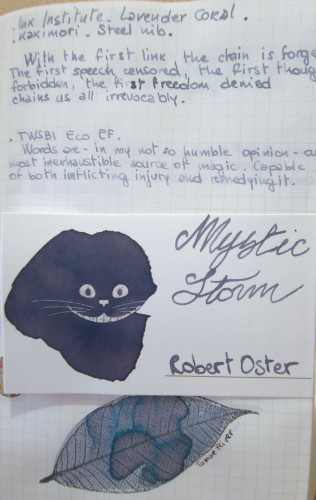 . Ink Institute. Lavender Coral.
. Kakimori. Steel nib.
With the first link, the chain is forge
The first speech censored, the first thoug
forbidden, the first freedom denied
chains us all irrevocably.
. TWSBI Eco EF.
Words are - in my not so humble opinion - ou
most inexhaustible source of magic. Capable
of both inflicting injury and remedying it.
Mystic
Storm
Robert Oster
River